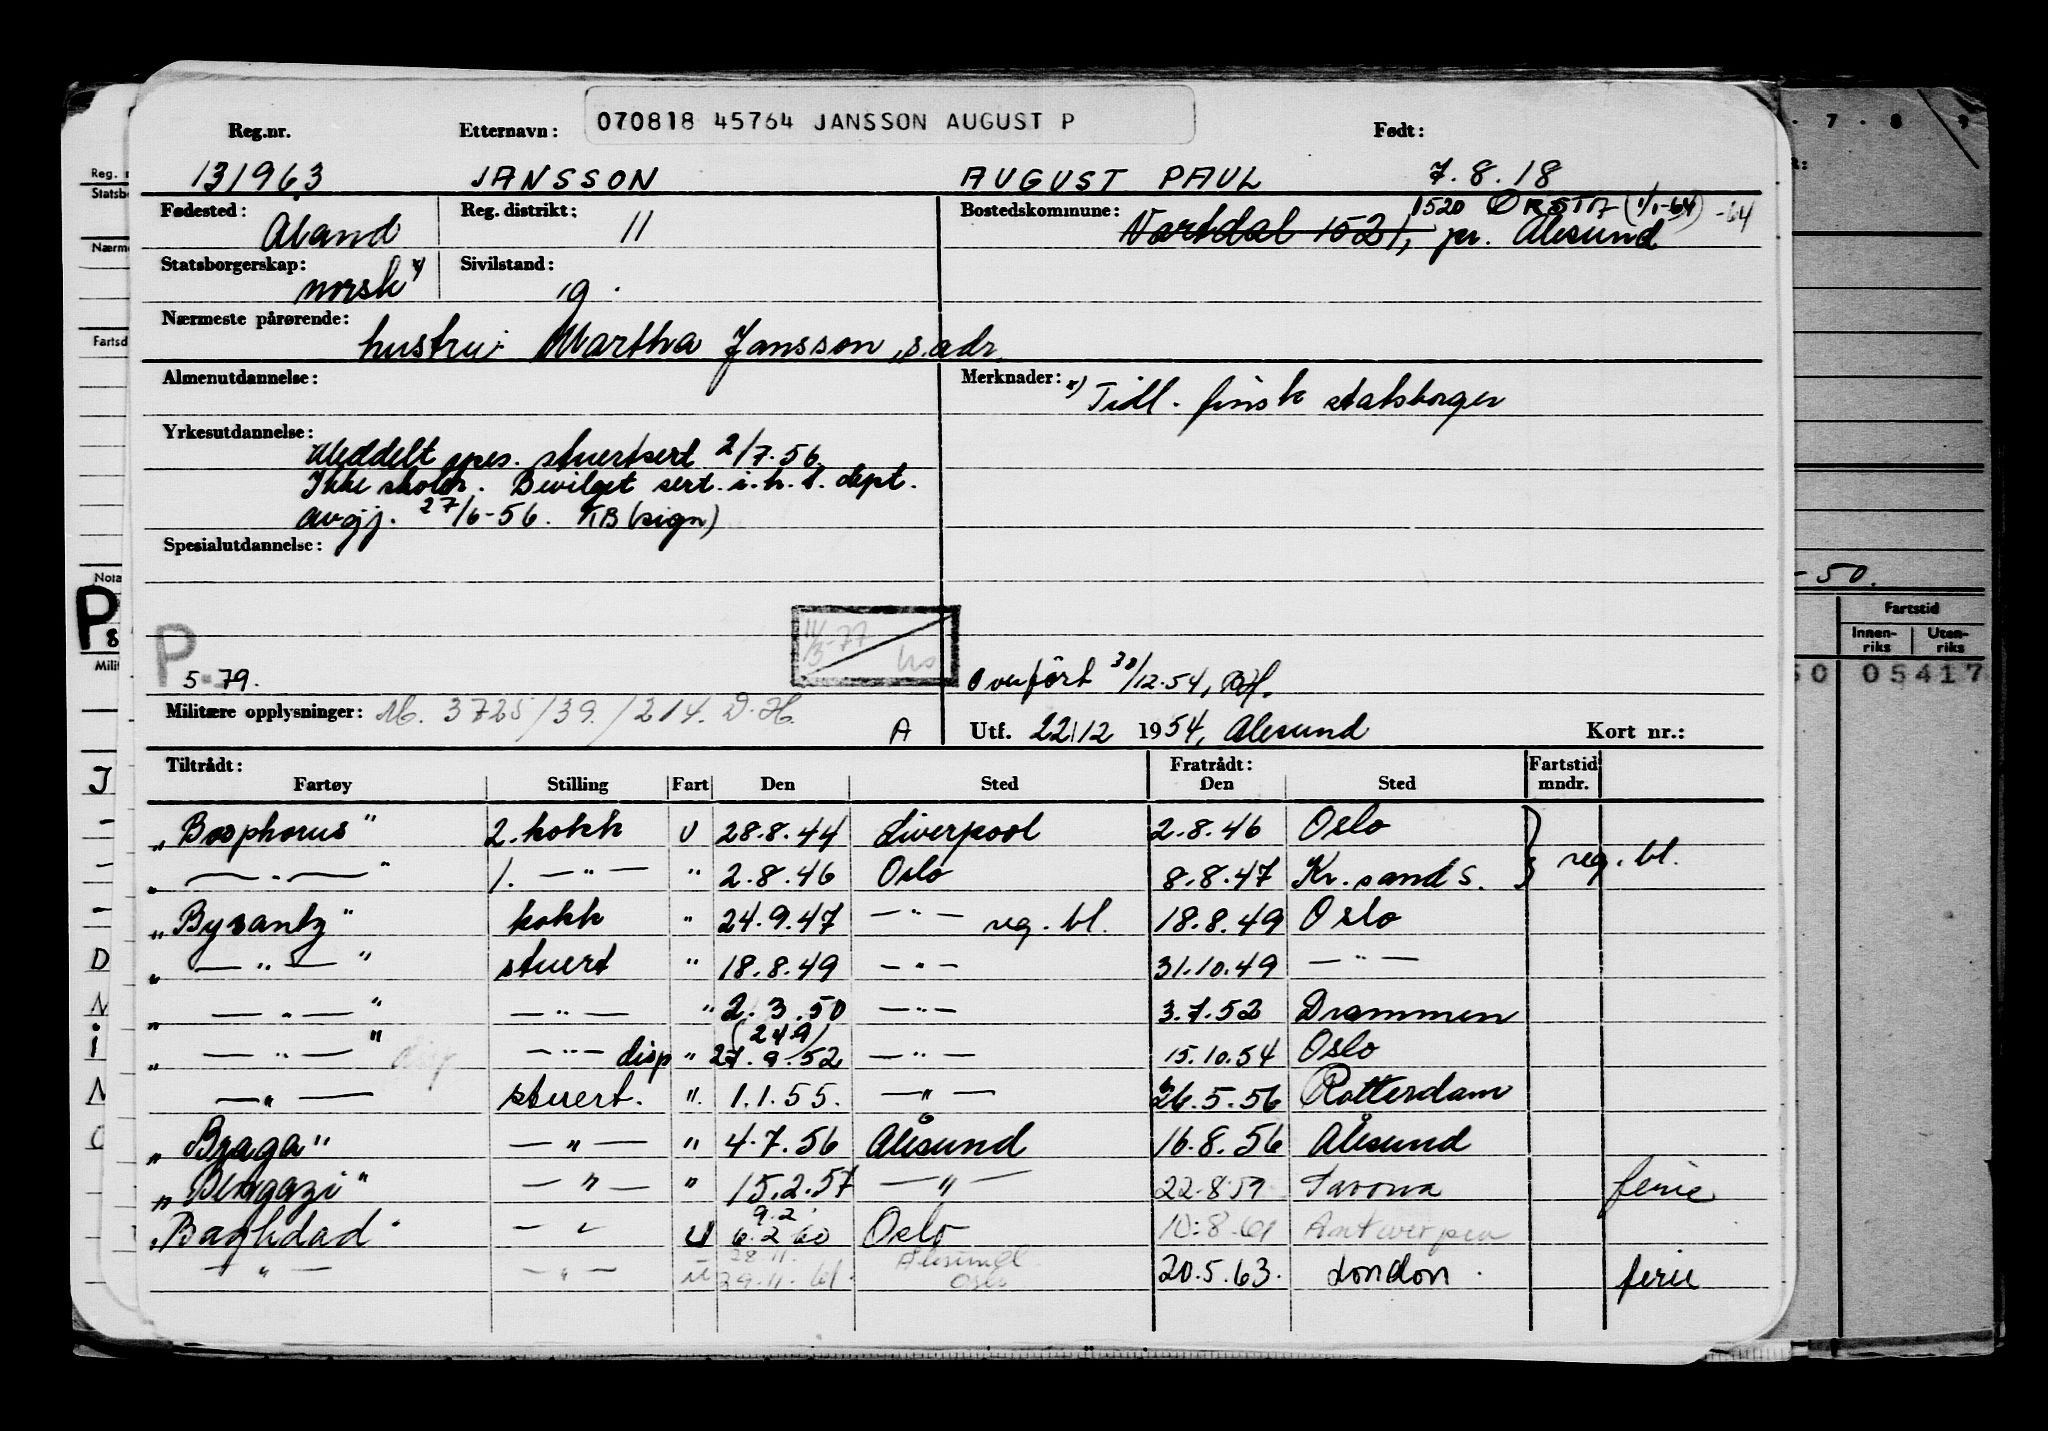 070818 45764 JANSSON AUGUST P
Reg.nr. Etternavn: Født:
131963 JANSSON AUGUST PAUL 7.8.18
Fødested: Åland Reg. distrikt: 11 Bostedskommune: 1520 ØRSTA (1/1-64) -64
Vartdal 1521, pr. Ålesund
Statsborgerskap: norsk x) Sivilstand: g.
Nærmeste pårørende: hustru: Martha Jansson, s. adr.
Almenutdannelse: Merknader: x) Tidl. finsk statsborger
Yrkesutdannelse:
Meddelt spes. stuertsert 2/7.56.
Ikke skoler. Bevilget sert. i.h.t. dept.
avgj. 27/6-56. KB (sign)
Spesialutdannelse:
P
11/3-77
5-79. Overført 30/12.54,
Militære opplysninger: M. 3725/39./214. D.H. A Utf. 22/12 1954, Ålesund Kort nr.:
Tiltrådt: Fratrådt: Fartstid
Fartøy Stilling Fart Den Sted Den Sted mndr.
„Bosphorus" 2. kokk U 28.8.44 Liverpool 2.8.46 Oslo
„ — " — " 1. — " — " 2.8.46 Oslo 8.8.47 Kr.sand S. } reg. bl.
„Byzantz" kokk " 24.9.47 — " — reg. bl. 18.8.49 Oslo
„ — " — " stuert " 18.8.49 — " — 31.10.49 — " —
„ — " — " — " — " 2.3.50 — " — 3.7.52 Drammen
(24.9)
„ — " — " disp — " — disp " 27.9.52 — " — 15.10.54 Oslo
— " — stuert. " 1.1.55. — " — 26.5.56 Rotterdam
„Braga" — " — " 4.7.56 Ålesund 16.8.56 Ålesund
„Bengazi" — " — " 15.2.57 — " — 22.8.59 Savona ferie
9.2.
„Baghdad" — " — U 6.2.60 Oslo 10.8.61 Antwerpen
28.11. Ålesund
— " — — " — U 29.11.61. Oslo 20.5.63. London. ferie
Reg. n
Statsbo
Nærme
Fartsd
Nota
P
8
Milit
J
D
N
i
N
7 . 8
-50.
Fartstid
Innen-
riks
Uten-
riks
50 05417